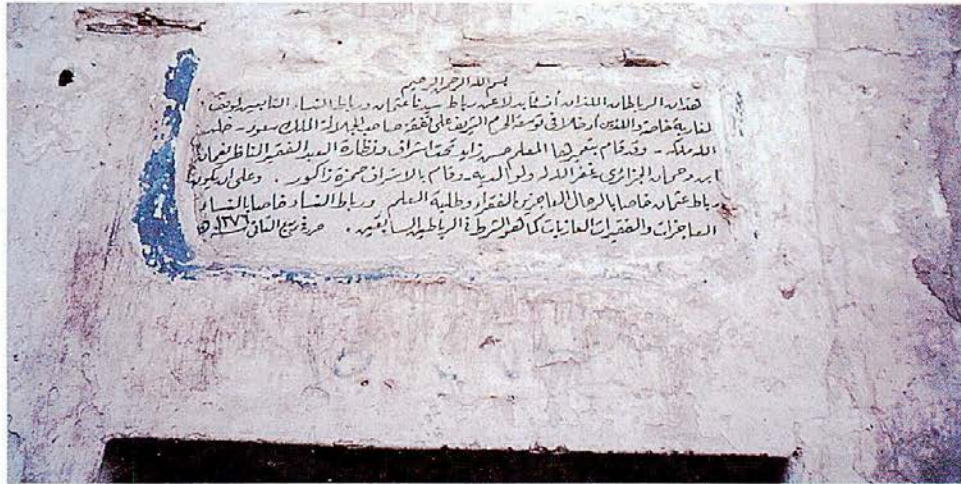 بسم الله الرحمن الرحيم
هذان الرباطان اللذان أنشئا بدلا عن رباط سيدنا عثمان ورباط النساء التابعين لوقف
المغاربة خاصة واللذين أدخلا في توسعة الحرم الشريف على نفقة صاحب الجلالة الملك سعود - خلد
الله ملكه - وقد قام بتعميرها المعلم حسن زابو تحت اشراف ونظارة العبد الفقير الناظر نعمان
ابن وحمان الجزائري غفر الله له ولوالديه - وقام بالاشراف حمزة زاكور . وعلى ان يكون
رباط عثمان خاصا بالرجال العاجزين الفقراء وطلبة العلم ورباط النساء خاصا بالنساء
العاجزات والفقيرات العازبات كما هو الشرط في الرباطين السابقين . حرر في ربيع الثاني ١٣٧٦ هـ